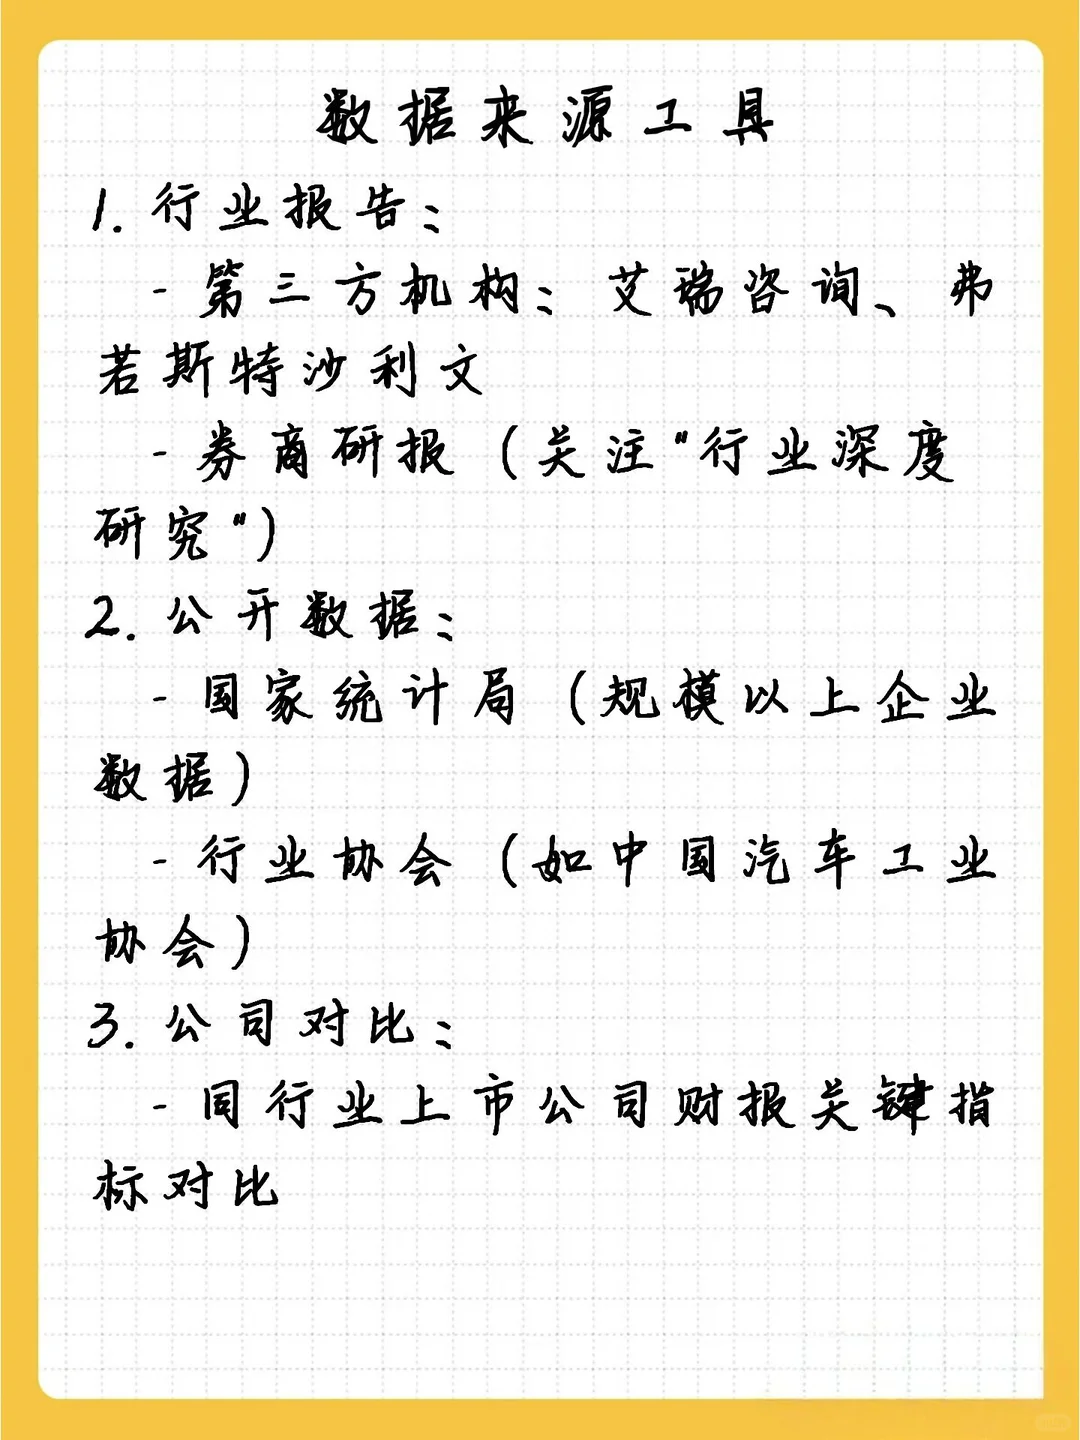 数据来源工具
1. 行业报告：
- 第三方机构：艾瑞咨询、弗
若斯特沙利文
- 券商研报（关注"行业深度
研究"）
2. 公开数据：
- 国家统计局（规模以上企业
数据）
- 行业协会（如中国汽车工业
协会）
3. 公司对比：
- 同行业上市公司财报关键指
标对比